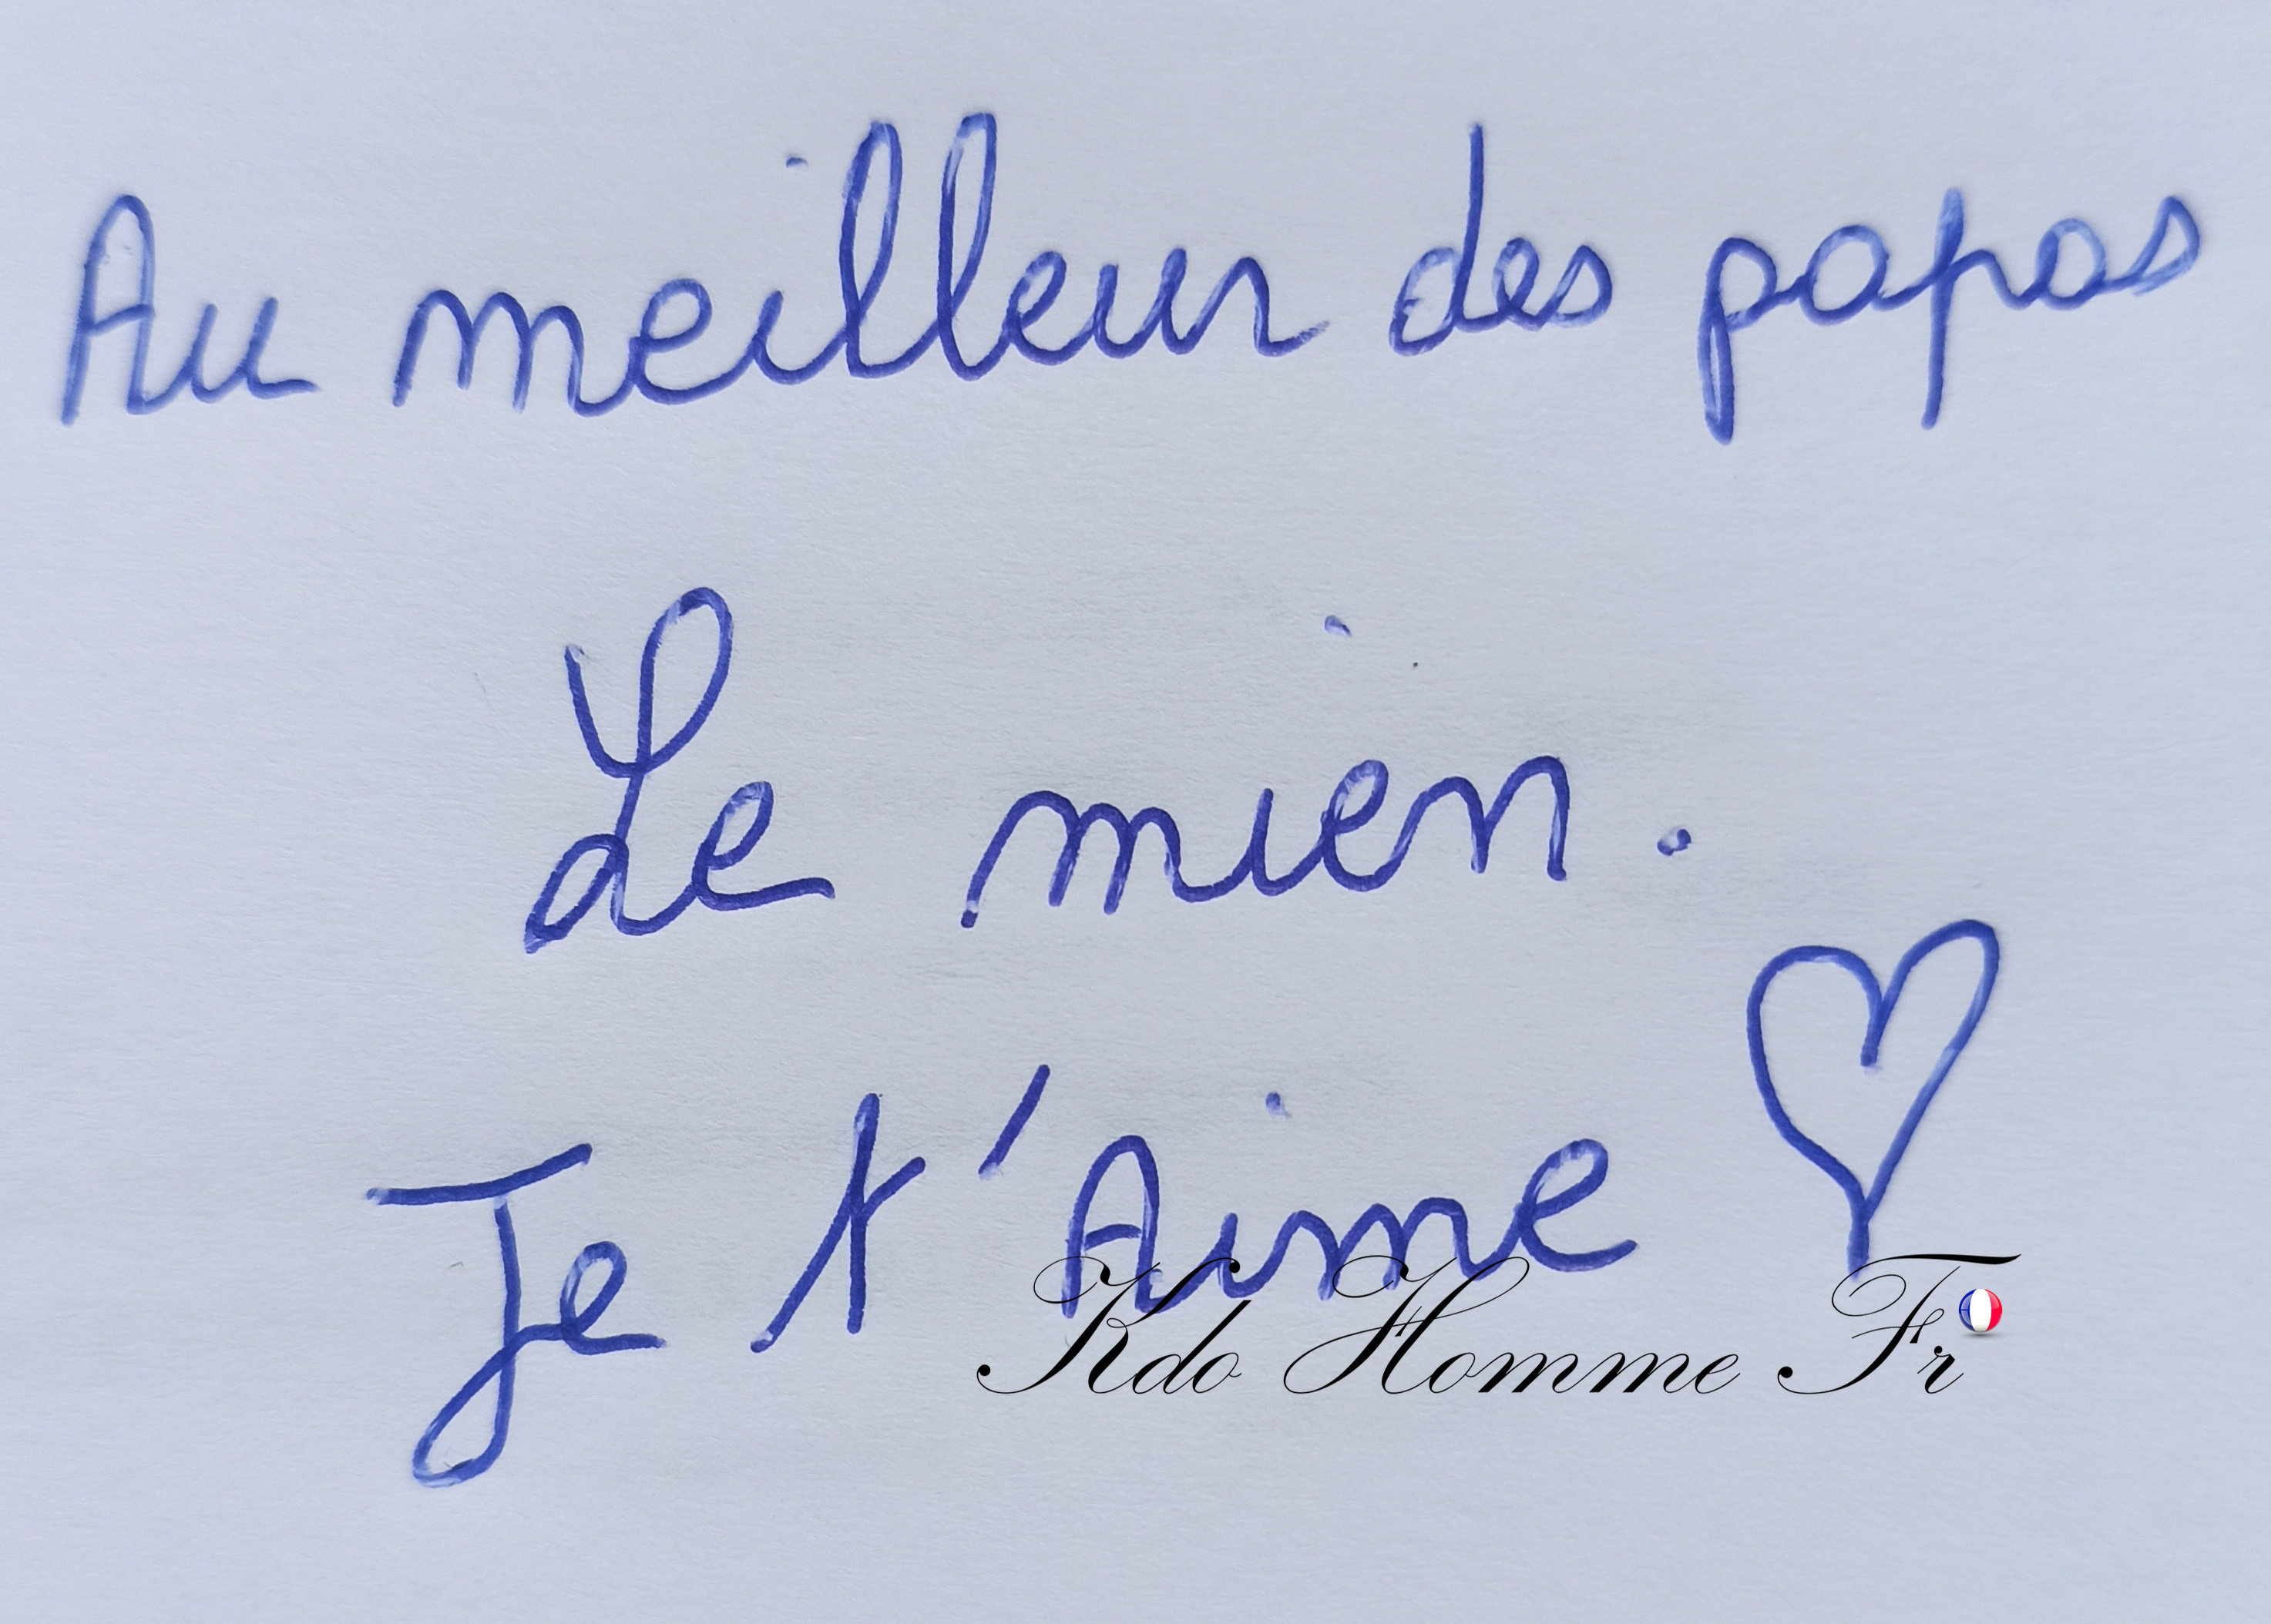 Au meilleur des papas
Le mien.
Je t'Aime ♡
Kdo Homme Fr